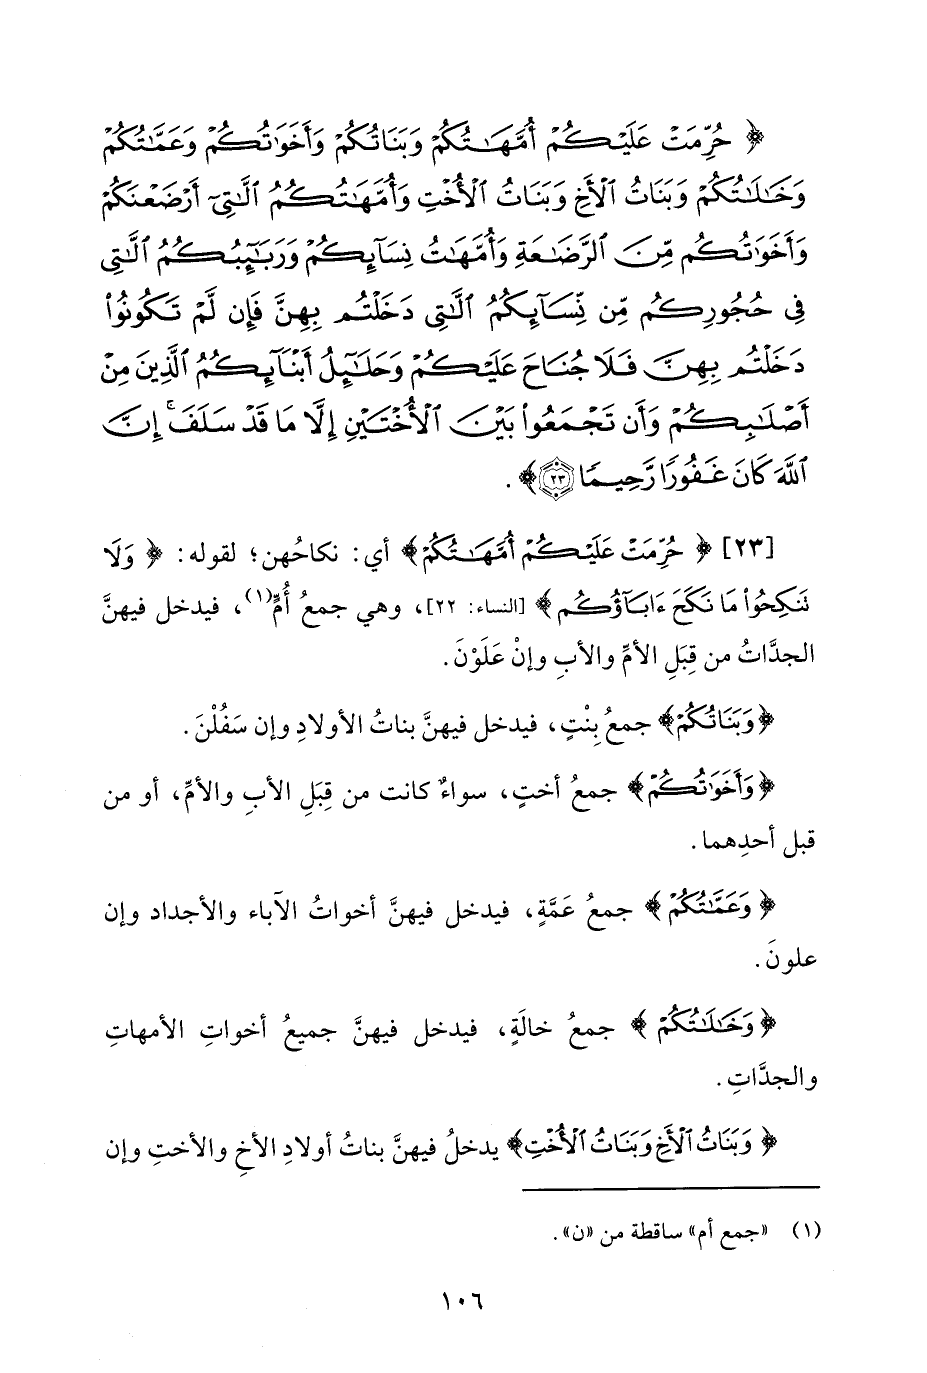 ﴿ حُرِّمَتْ عَلَيْكُمْ أُمَّهَٰتُكُمْ وَبَنَاتُكُمْ وَأَخَوَٰتُكُمْ وَعَمَّٰتُكُمْ
وَخَٰلَٰتُكُمْ وَبَنَاتُ ٱلْأَخِ وَبَنَاتُ ٱلْأُخْتِ وَأُمَّهَٰتُكُمُ ٱلَّٰتِىٓ أَرْضَعْنَكُمْ
وَأَخَوَٰتُكُم مِّنَ ٱلرَّضَٰعَةِ وَأُمَّهَٰتُ نِسَآئِكُمْ وَرَبَٰٓئِبُكُمُ ٱلَّٰتِى
فِى حُجُورِكُم مِّن نِّسَآئِكُمُ ٱلَّٰتِى دَخَلْتُم بِهِنَّ فَإِن لَّمْ تَكُونُوا۟
دَخَلْتُم بِهِنَّ فَلَا جُنَاحَ عَلَيْكُمْ وَحَلَٰٓئِلُ أَبْنَآئِكُمُ ٱلَّذِينَ مِنْ
أَصْلَٰبِكُمْ وَأَن تَجْمَعُوا۟ بَيْنَ ٱلْأُخْتَيْنِ إِلَّا مَا قَدْ سَلَفَ ۚ إِنَّ
ٱللَّهَ كَانَ غَفُورًا رَّحِيمًا ٢٣ ﴾ .
[٢٣] ﴿ حُرِّمَتْ عَلَيْكُمْ أُمَّهَٰتُكُمْ ﴾ أي: نكاحُهن؛ لقوله: ﴿ وَلَا
تَنكِحُوا۟ مَا نَكَحَ ءَابَآؤُكُم ﴾ [النساء: ٢٢]، وهي جمعُ أُمٍّ(١)، فيدخل فيهنَّ
الجدَّاتُ من قِبَلِ الأمِّ والأبِ وإنْ عَلَوْنَ.
﴿وَبَنَاتُكُمْ﴾ جمعُ بِنْتٍ، فيدخل فيهنَّ بناتُ الأولادِ وإن سَفُلْنَ.
﴿وَأَخَوَٰتُكُمْ﴾ جمعُ أختٍ، سواءٌ كانت من قِبَلِ الأبِ والأمِّ، أو من
قبل أحدِهما.
﴿ وَعَمَّٰتُكُمْ ﴾ جمعُ عَمَّةٍ، فيدخل فيهنَّ أخواتُ الآباء والأجداد وإن
علونَ.
﴿ وَخَٰلَٰتُكُمْ ﴾ جمعُ خالَةٍ، فيدخل فيهنَّ جميعُ أخواتِ الأمهاتِ
والجدَّاتِ.
﴿ وَبَنَاتُ ٱلْأَخِ وَبَنَاتُ ٱلْأُخْتِ﴾ يدخلُ فيهنَّ بناتُ أولادِ الأخِ والأختِ وإن
(١) «جمع أم» ساقطة من «ن».
١٠٦